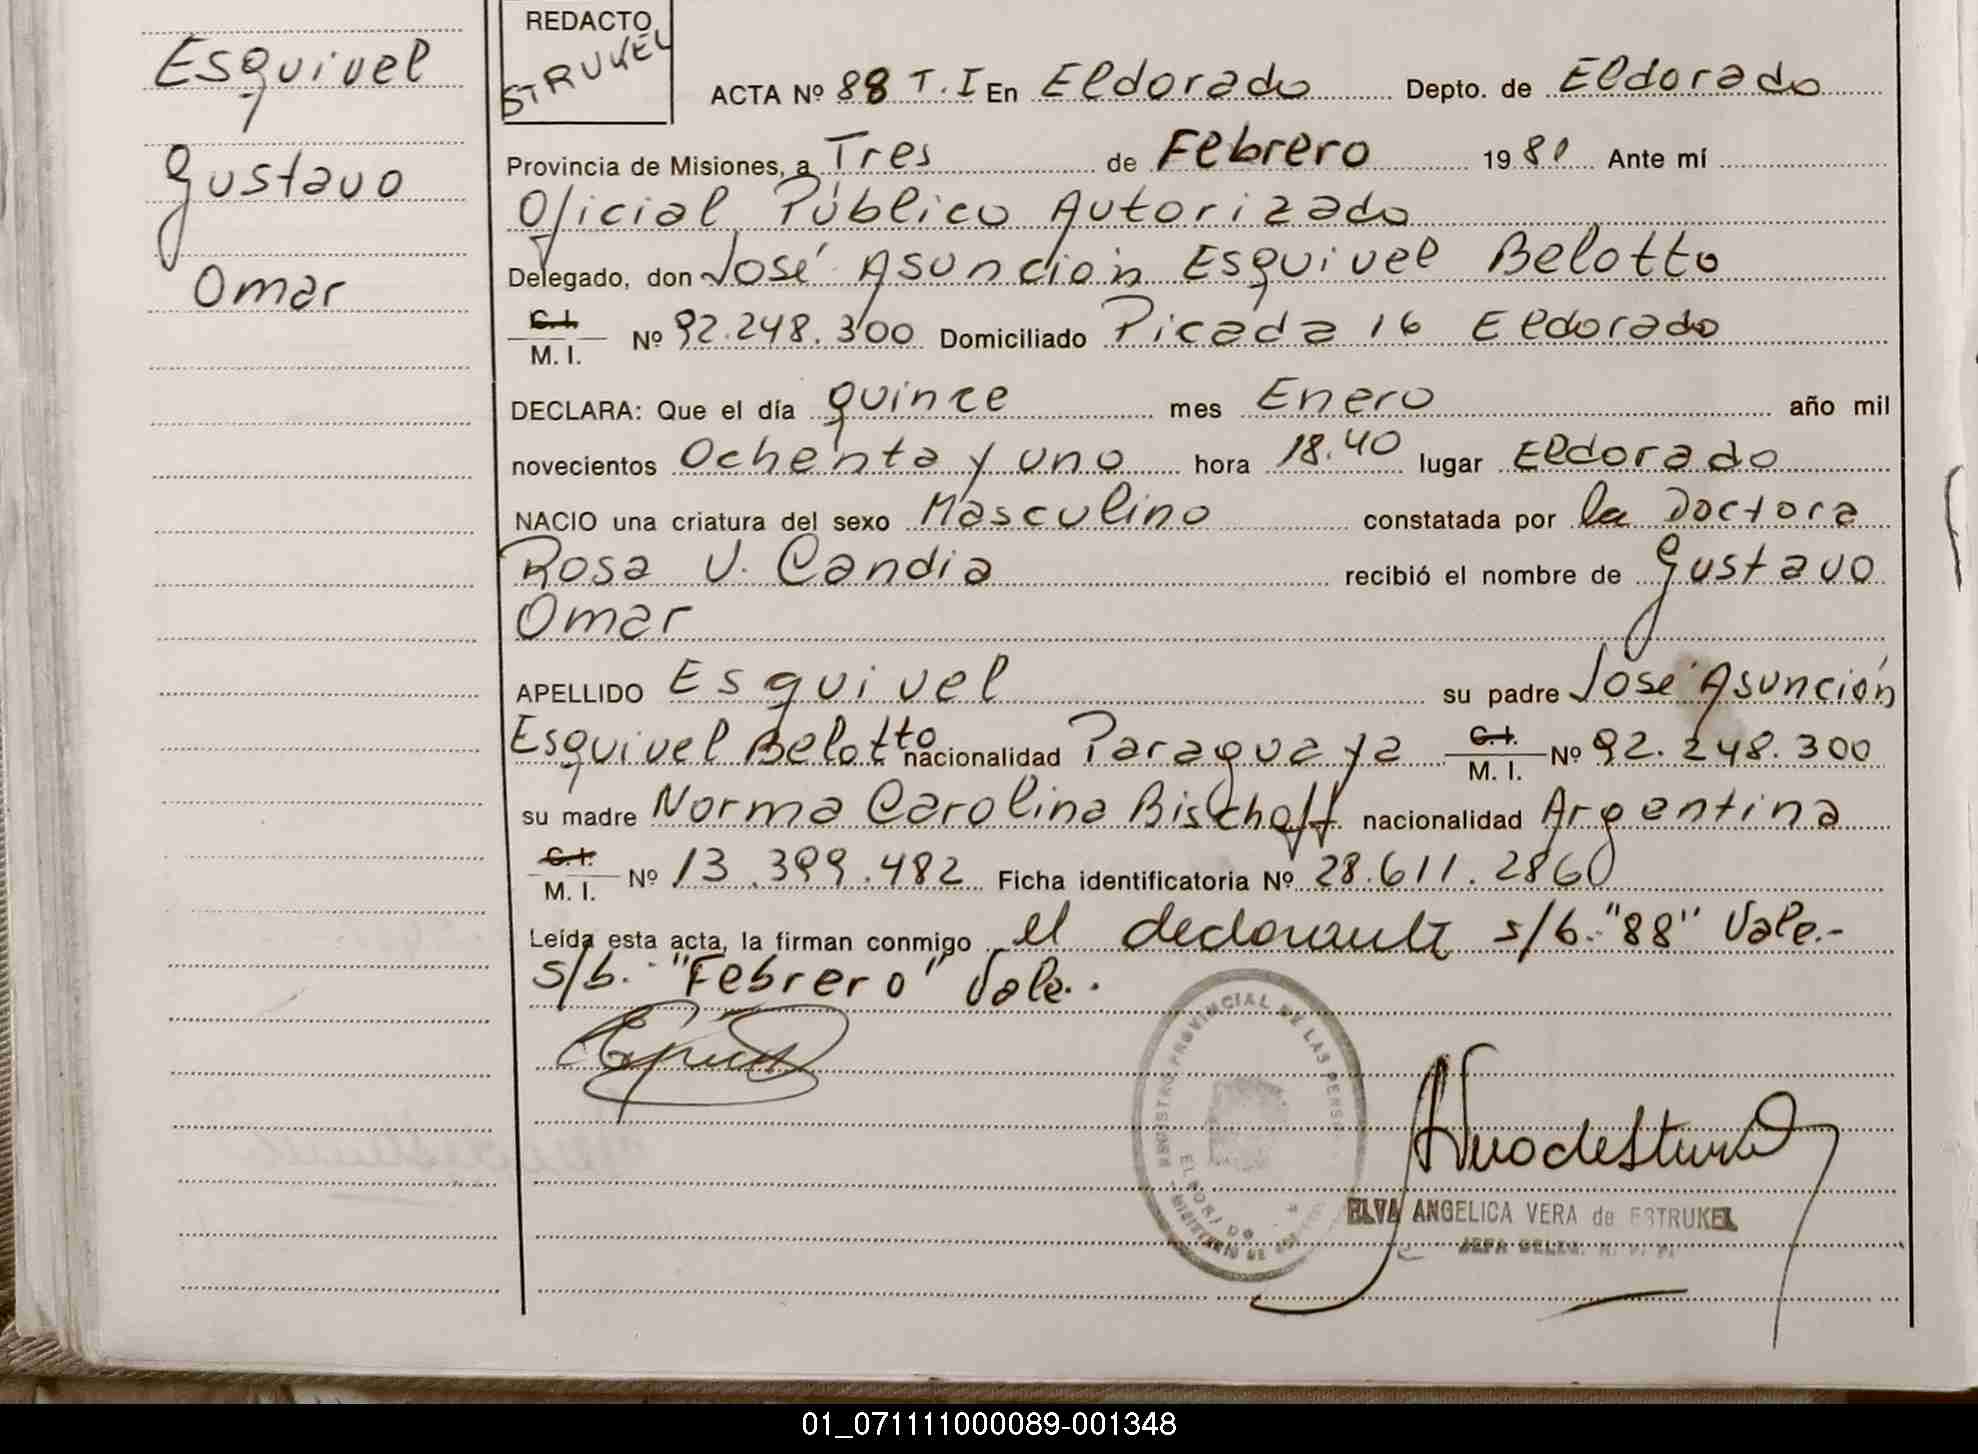 Esquivel
Gustavo
Omar
REDACTO
STRUKEL
ACTA Nº 88 T.I En Eldorado Depto. de Eldorado
Provincia de Misiones, a Tres de Febrero 1981 Ante mí
Oficial Público Autorizado
Delegado, don José Asunción Esquivel Belotto
C. I.
M. I. Nº 92.248.300 Domiciliado Picada 16 Eldorado
DECLARA: Que el día quince mes Enero año mil
novecientos Ochenta y uno hora 18.40 lugar Eldorado
NACIO una criatura del sexo Masculino constatada por la Doctora
Rosa V. Candia recibió el nombre de Gustavo
Omar
APELLIDO Esquivel su padre José Asunción
Esquivel Belotto nacionalidad Paraguaya C. I. M. I. Nº 92.248.300
su madre Norma Carolina Bischoff nacionalidad Argentina
C. I.
M. I. Nº 13.399.482 Ficha identificatoria Nº 28.611.2860
Leída esta acta, la firman conmigo el declarante s/b. "88" Vale.-
s/b. "Febrero" Vale.
REGISTRO PROVINCIAL DE LAS PERSONAS
ELDORADO
MINISTERIO DE
ELVA ANGELICA VERA de ESTRUKEL
JEFA DELEG. R. P. P.
01_071111000089-001348